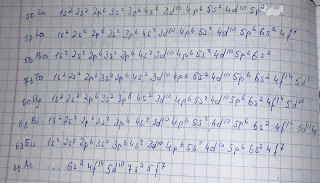 50 Sn 1s² 2s² 2p⁶ 3s² 3p⁶ 4s² 3d¹⁰ 4p⁶ 5s² 4d¹⁰ 5p²
57 La 1s² 2s² 2p⁶ 3s² 3p⁶ 4s² 3d¹⁰ 4p⁶ 5s² 4d¹⁰ 5p⁶ 6s² 4f¹
56 Ba 1s² 2s² 2p⁶ 3s² 3p⁶ 4s² 3d¹⁰ 4p⁶ 5s² 4d¹⁰ 5p⁶ 6s²
73 Ta 1s² 2s² 2p⁶ 3s² 3p⁶ 4s² 3d¹⁰ 4p⁶ 5s² 4d¹⁰ 5p⁶ 6s² 4f¹⁴
80 Hg 1s² 2s² 2p⁶ 3s² 3p⁶ 4s² 3d¹⁰ 4p⁶ 5s² 4d¹⁰ 5p⁶ 6s² 4f¹⁴ 5d¹⁰
Bi 1s² 2s² 2p⁶ 3s² 3p⁶ 4s² 3d¹⁰ 4p⁶ 5s² 4d¹⁰ 5p⁶ 6s² 4f¹⁴ 5d¹⁰
63 Eu 1s² 2s² 2p⁶ 3s² 3p⁶ 4s² 3d¹⁰ 4p⁶ 5s² 4d¹⁰ 5p⁶ 6s² 4f⁷
Ac ... 6s² 4f¹⁴ 5d¹⁰ 7s² 5f⁷